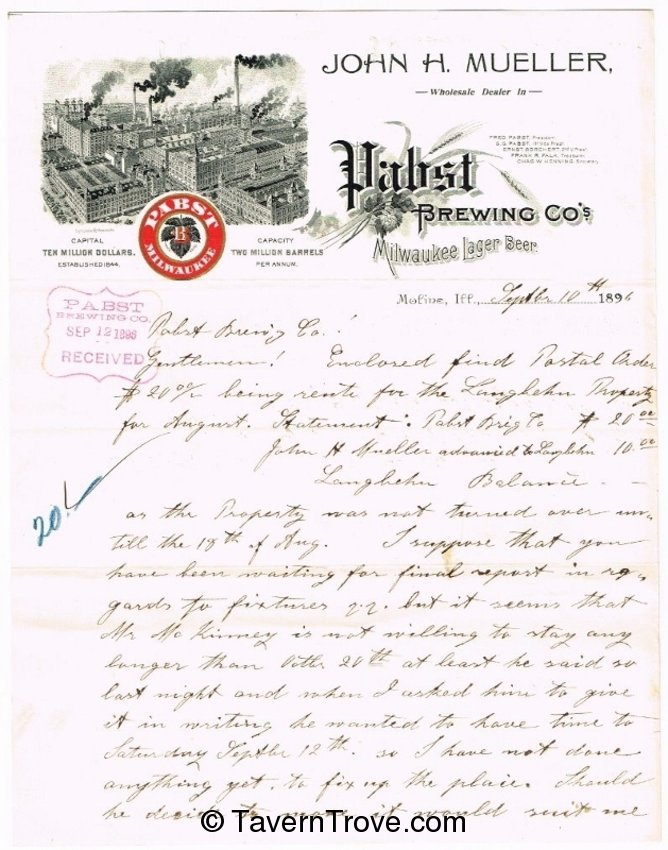 JOHN H. MUELLER,
Wholesale Dealer In
FRED PABST, President
G.G. PABST, 1st Vice Prest.
ERNST BORCHERT, 2nd V. Prest.
FRANK R. FALK, Treasurer
CHAS W. HENNING, Secretary
Pabst
BREWING CO'S
Milwaukee Lager Beer
CAPITAL
TEN MILLION DOLLARS.
ESTABLISHED 1844.
PABST
B
MILWAUKEE
CAPACITY
TWO MILLION BARRELS
PER ANNUM.
Moline, Ill., Septbr 10th 1896
PABST
BREWING CO.
SEP 12 1896
RECEIVED
Pabst Brew'g Co.!
Gentlemen! Enclosed find Postal Order
$ 20 00/ being rente for the Langbehn Property
for August. Statement: Pabst Br'g Co $ 20.00
John H Mueller advanced to Langbehn 10.00
Langbehn Balance - -
20
as the Property was not turned over un-
till the 18th of Aug. I suppose that you
have been waiting for final report in re-
gards to fixtures but it seems that
Mr McKinney is not willing to stay any
longer than Octbr 20th at least he said so
last night and when I asked him to give
it in writing he wanted to have time to
Saturday Septbr 12th. so I have not done
anything yet, to fix up the place. Should
he decide to move it would suit me
© TavernTrove.com